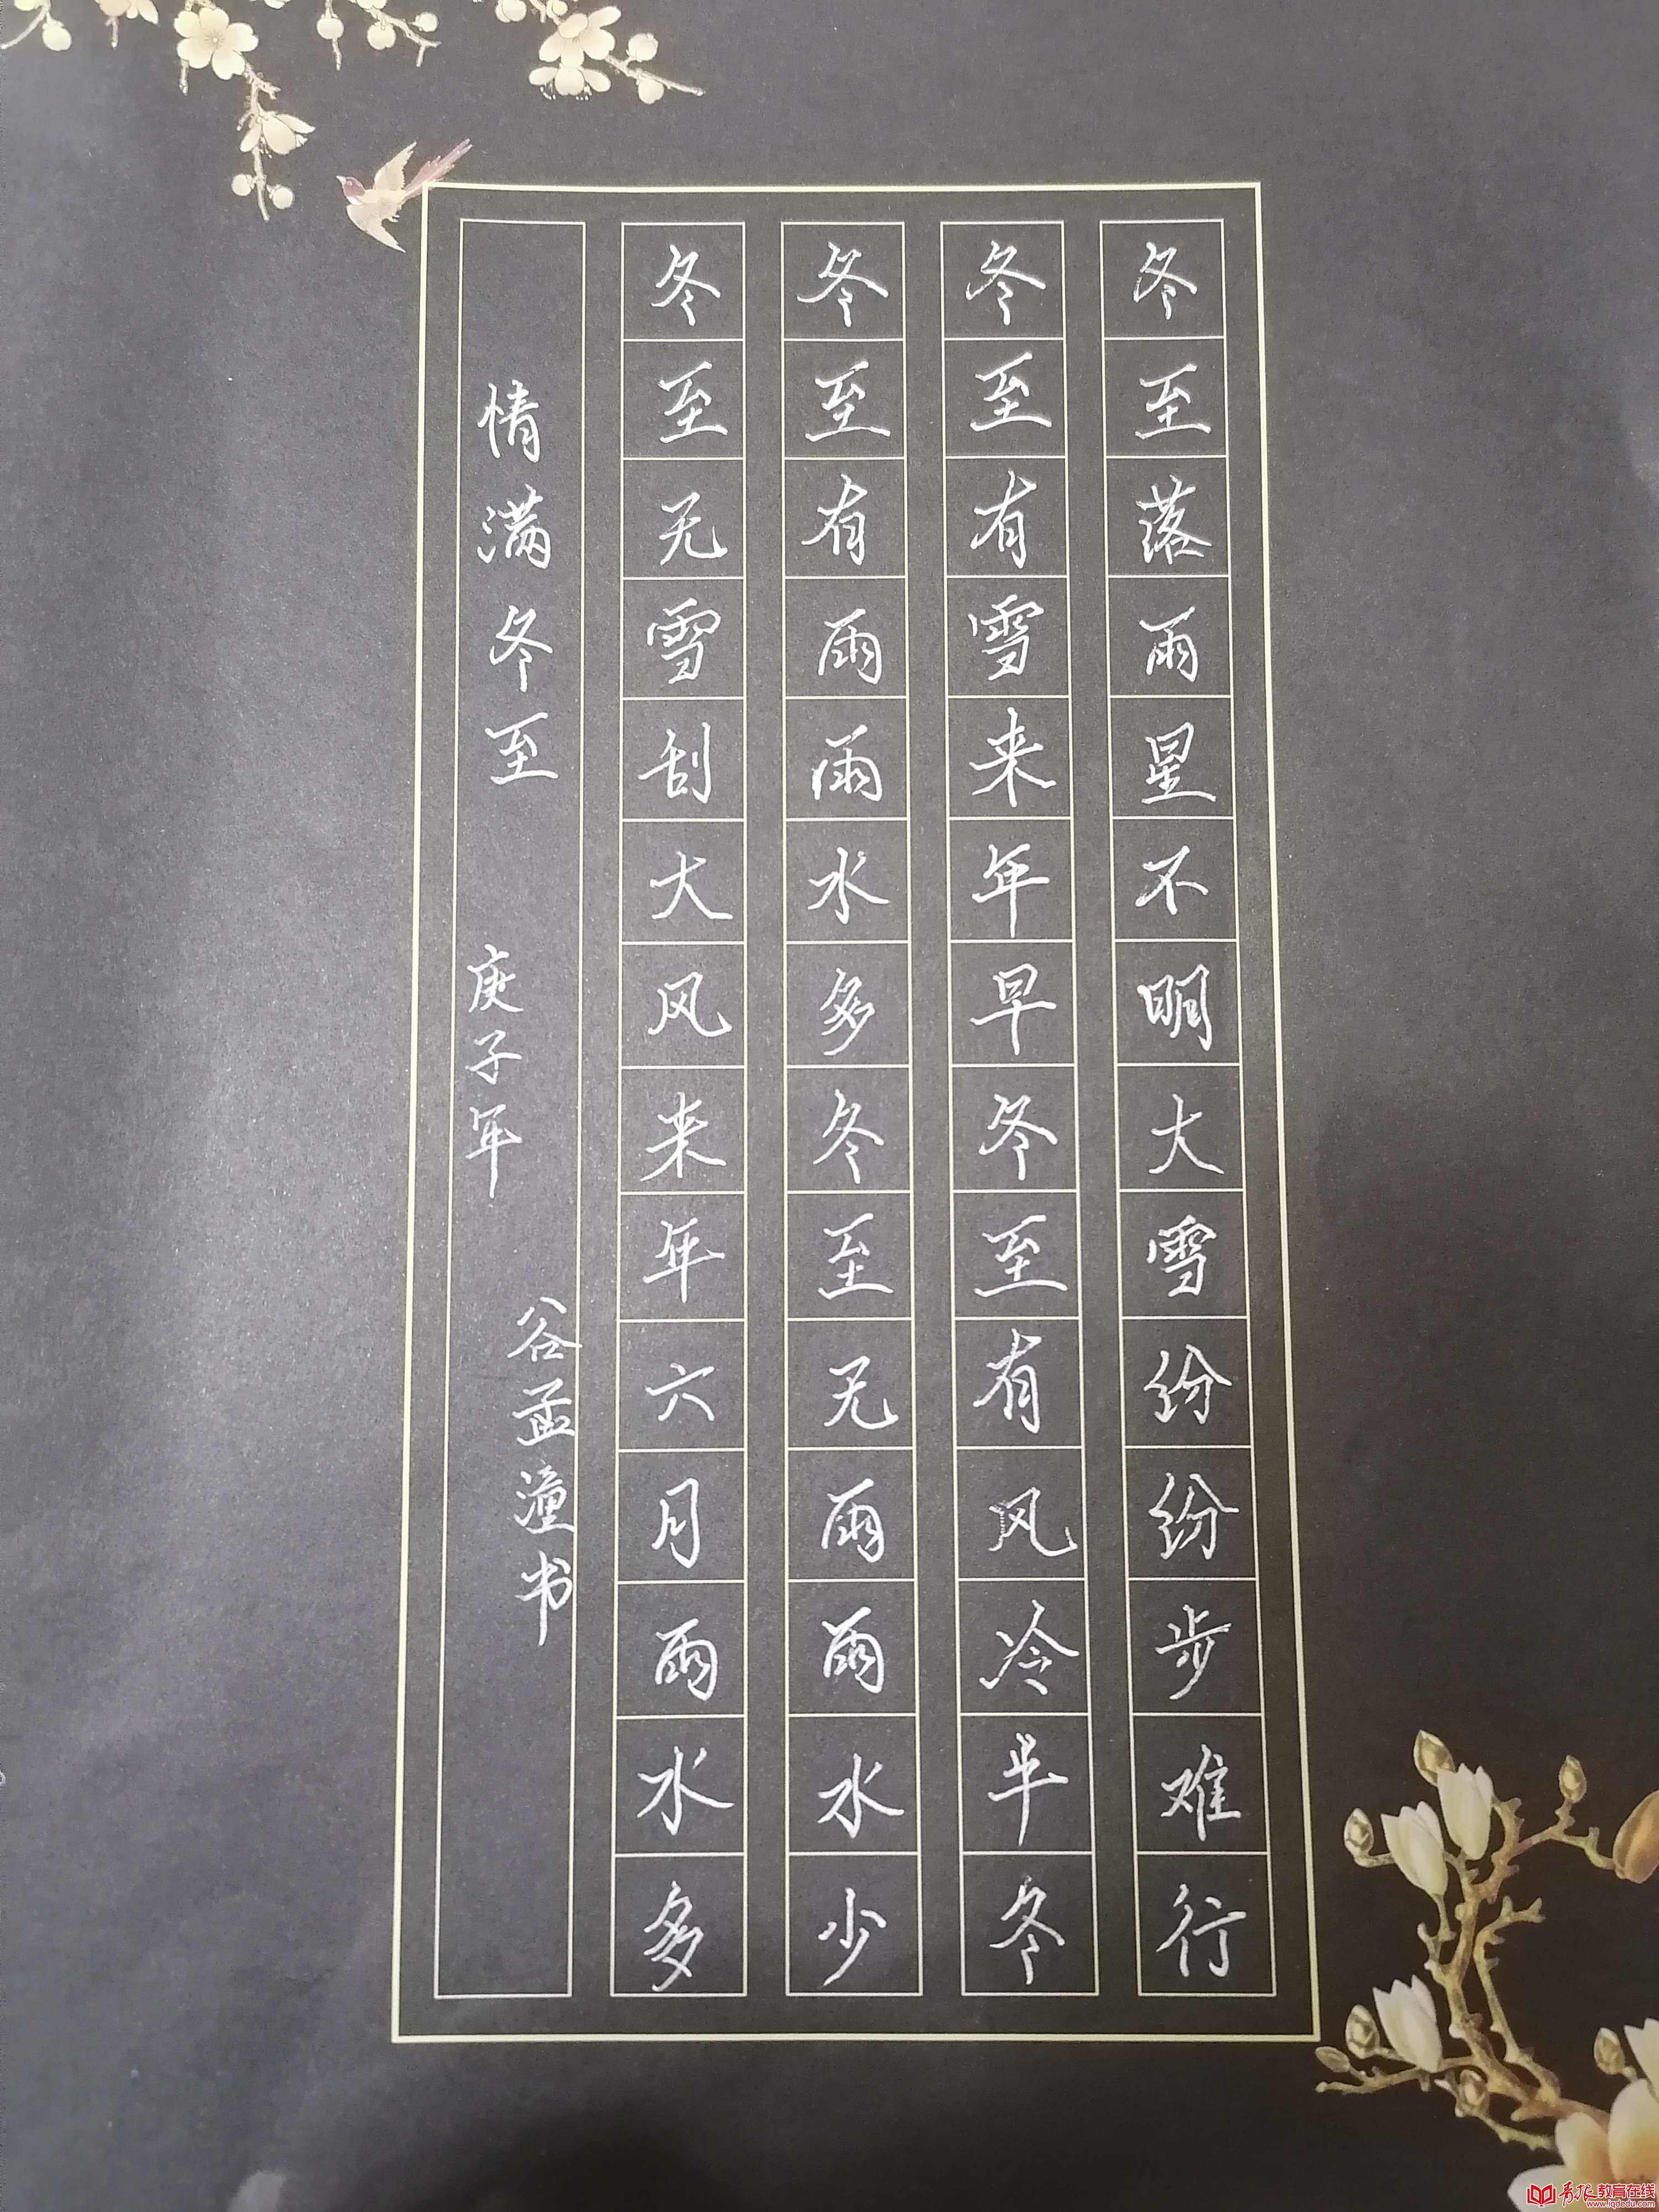 冬至落雨星不明大雪纷纷步难行
冬至有雪来年旱冬至有风冷半冬
冬至有雨雨水多冬至无雨雨水少
冬至无雪刮大风来年六月雨水多
情满冬至 庚子年 谷孟潼书
青版教育在线
www.iqdedu.com